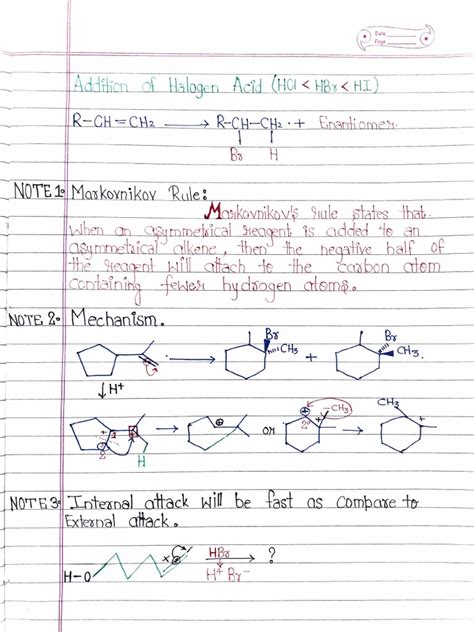 Date
Page
Addition of Halogen Acid (HCl < HBr < HI)
R-CH=CH2 → R-CH-CH2 + Enantiomer.
Br H
NOTE 1: Markovnikov Rule:
Markovnikov's rule states that
when an asymmetrical reagent is added to an
asymmetrical alkene, then the negative half of
the reagent will attach to the carbon atom
containing fewer hydrogen atoms.
NOTE 2: Mechanism.
Br
CH3
+
Br
CH3.
↓H+
H
2
1
3
⊕
or
⊕
2°
CH3
CH3
+
NOTE 3: Internal attack will be fast as compare to
External attack.
H-O
x
⊕
HBr
→ ?
H+ Br-